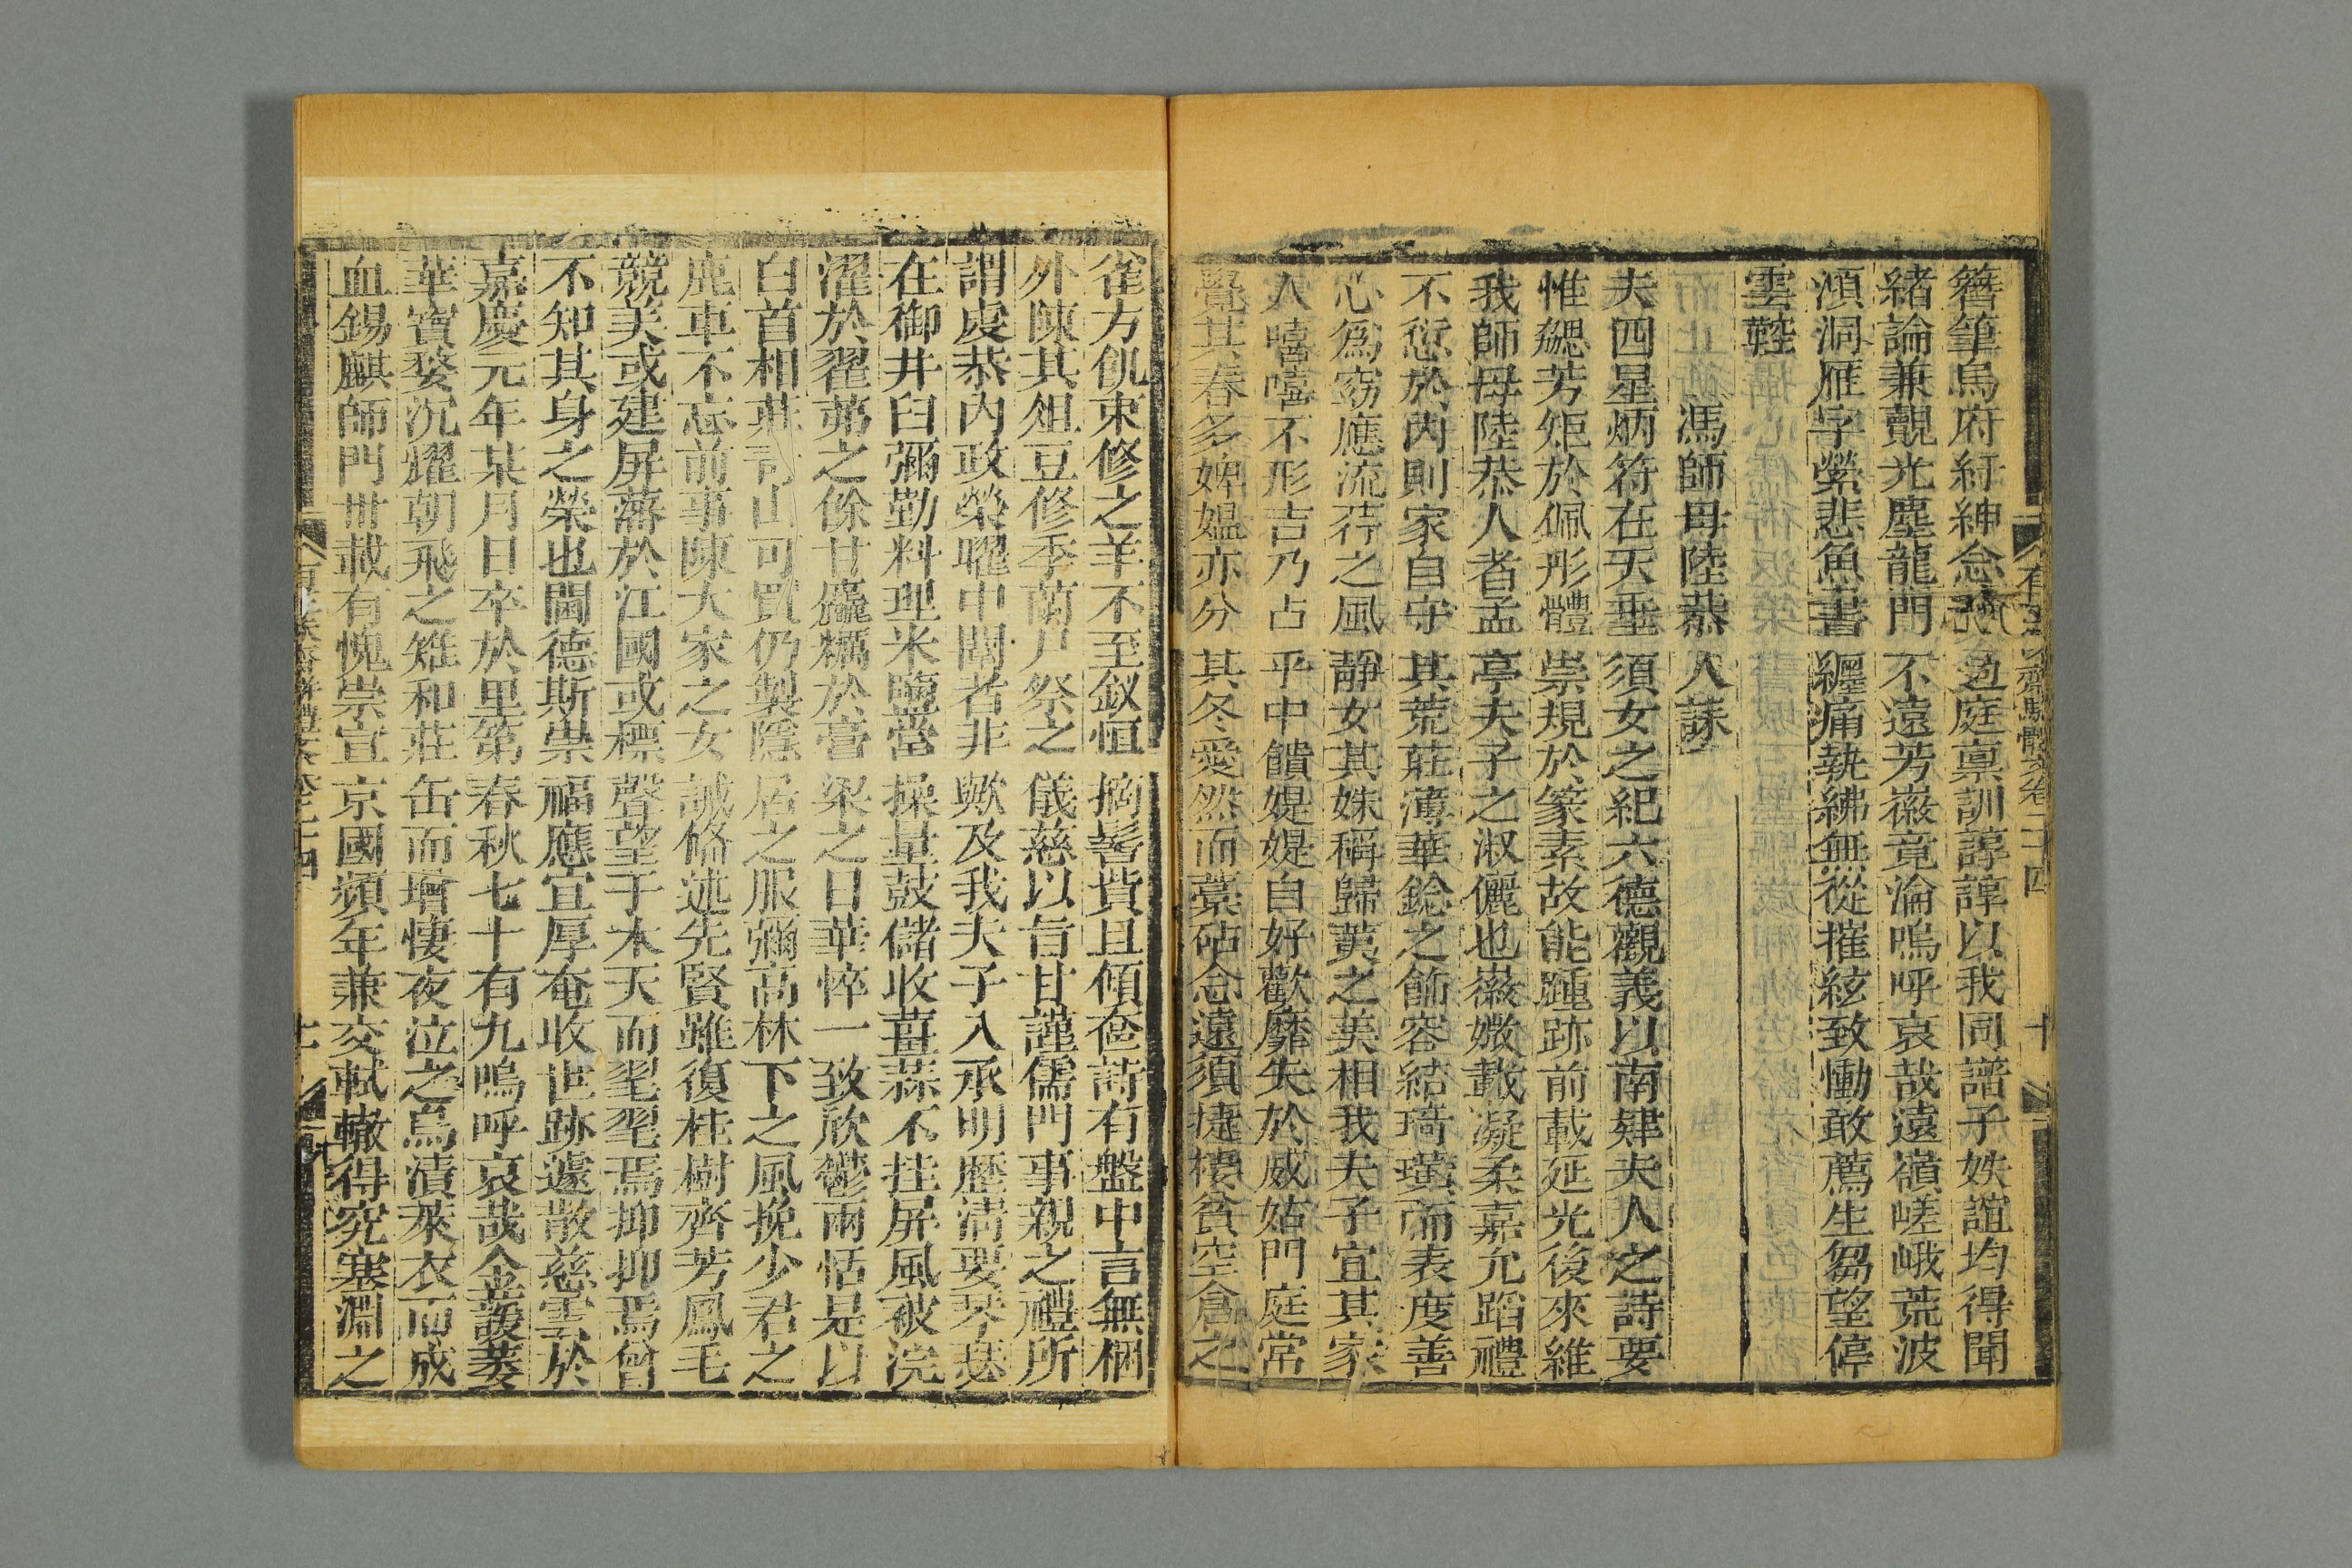 簪筆烏府紆紳念 過庭禀訓諄諄以我同譜子姝誼均得聞
緒論兼覿光塵龍門不遠芳徽竟淪嗚呼哀哉遠嶺嵯峨荒波
澒洞雁字縈悲魚書纒痛執紼無從摧絃致慟敢薦生芻望停
雲輊
馮師母陸恭人誄
夫四星炳符在天垂須女之紀六德觀義以南肄夫人之詩要
惟勰芳矩於佩形體崇規於篆素故能踵跡前載延光後來維
我師母陸恭人者孟亭夫子之淑儷也徽媺載凝柔嘉允蹈禮
不愆於內則家自守其荒莊薄華鈆之飾容結琦璜而表度善
心爲窈應流荇之風靜女其姝稱歸荑之美相我夫子宜其家
人嘻嘻不形吉乃占乎中饋媞媞自好歡靡失於威姑門庭常
覺其春多婢媼亦分其冬愛然而藁砧念遠須捷樓貧空倉之
雀方飢束修之羊不至釵恒摘髻貲且傾奩詩有盤中言無梱
外陳其俎豆修季蘭尸祭之儀慈以旨甘謹儒門事親之禮所
謂虔恭內政榮曜中閨者非歟及我夫子入承明歷清要琴瑟
在御井臼彌勤料理米鹽當操量鼓儲收薑蒜不挂屏風被浣
濯於翟茀之餘甘 糲於膏粱之日華悴一致欣鬱兩恬是以
白首相莊青山可買仍製隱居之服彌高林下之風挽少君之
鹿車不忘前事陳大家之女誡俻述先賢雖復桂樹齊芳鳳毛
競美或建屏藩於江國或標聲望于木天而翟翟焉抑抑焉曾
不知其身之榮也閫德斯崇福應宜厚奄收世跡遽散慈雲於
嘉慶元年某月日卒於里第春秋七十有九嗚呼哀哉金菱萎
華寶婺沉耀朝飛之雉和莊缶而增悽夜泣之烏漬萊衣而成
血錫麒師門卅載有愧崇宣京國頻年兼交軾轍得究塞淵之